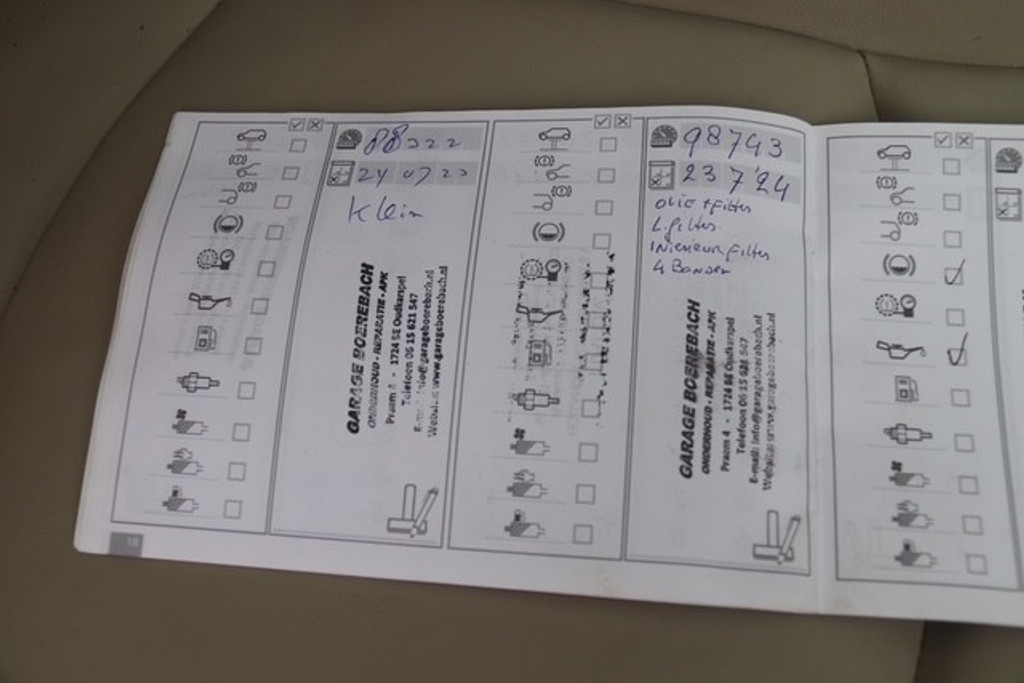 88322
24 07 23
Klein
GARAGE BOEREBACH
ONDERHOUD - REPARATIE - APK
Praam 4 - 1724 SE Oudkarspel
Telefoon 06 15 621 547
E-mail: info@garageboerebach.nl
Website: www.garageboerebach.nl
18
98743
23 7 '24
olie + filter
L. filter
Interieurfilter
4 Banden
GARAGE BOEREBACH
ONDERHOUD - REPARATIE - APK
Praam 4 - 1724 SE Oudkarspel
Telefoon 06 15 621 547
E-mail: info@garageboerebach.nl
Website: www.garageboerebach.nl